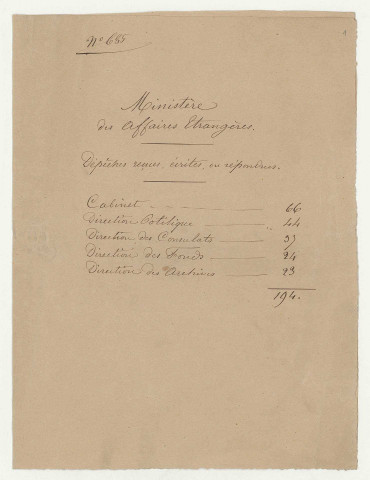 Nº 655
Ministère
des Affaires Etrangères.
Dépêches reçues, écrites, ou répondues.
Cabinet 66
Direction Politique 44
Direction des Consulats 37
Direction des Fonds 24
Direction des Archives 23
194.